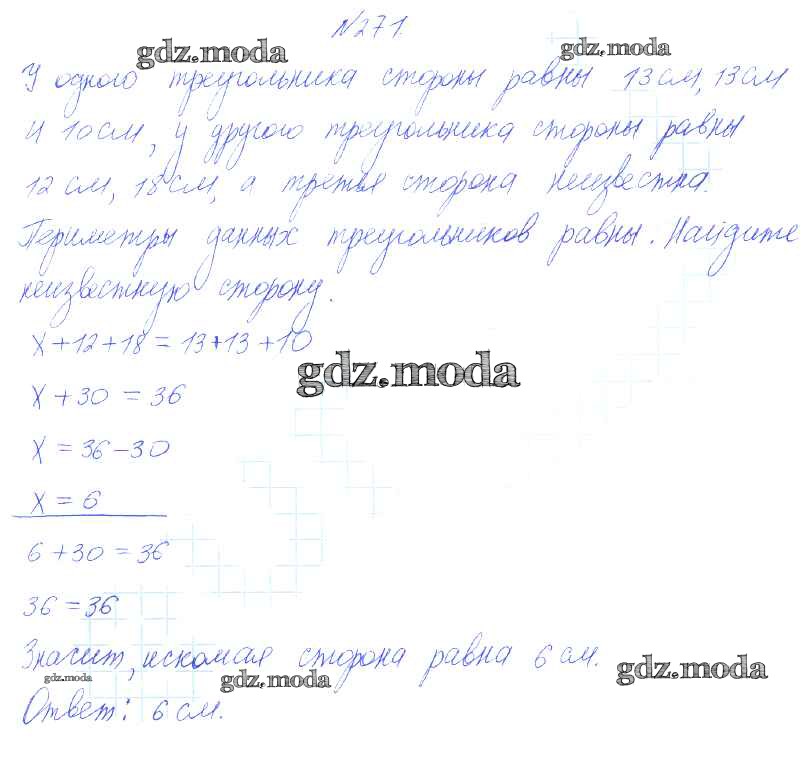 №271.
gdz.moda
gdz.moda
У одного треугольника стороны равны 13 см, 13 см
и 10 см, у другого треугольника стороны равны
12 см, 18 см, а третья сторона неизвестна.
Периметры данных треугольников равны. Найдите
неизвестную сторону.
x + 12 + 18 = 13 + 13 + 10
gdz.moda
x + 30 = 36
x = 36 - 30
x = 6
6 + 30 = 36
36 = 36
Значит, искомая сторона равна 6 см.
gdz.moda
gdz.moda
gdz.moda
Ответ: 6 см.